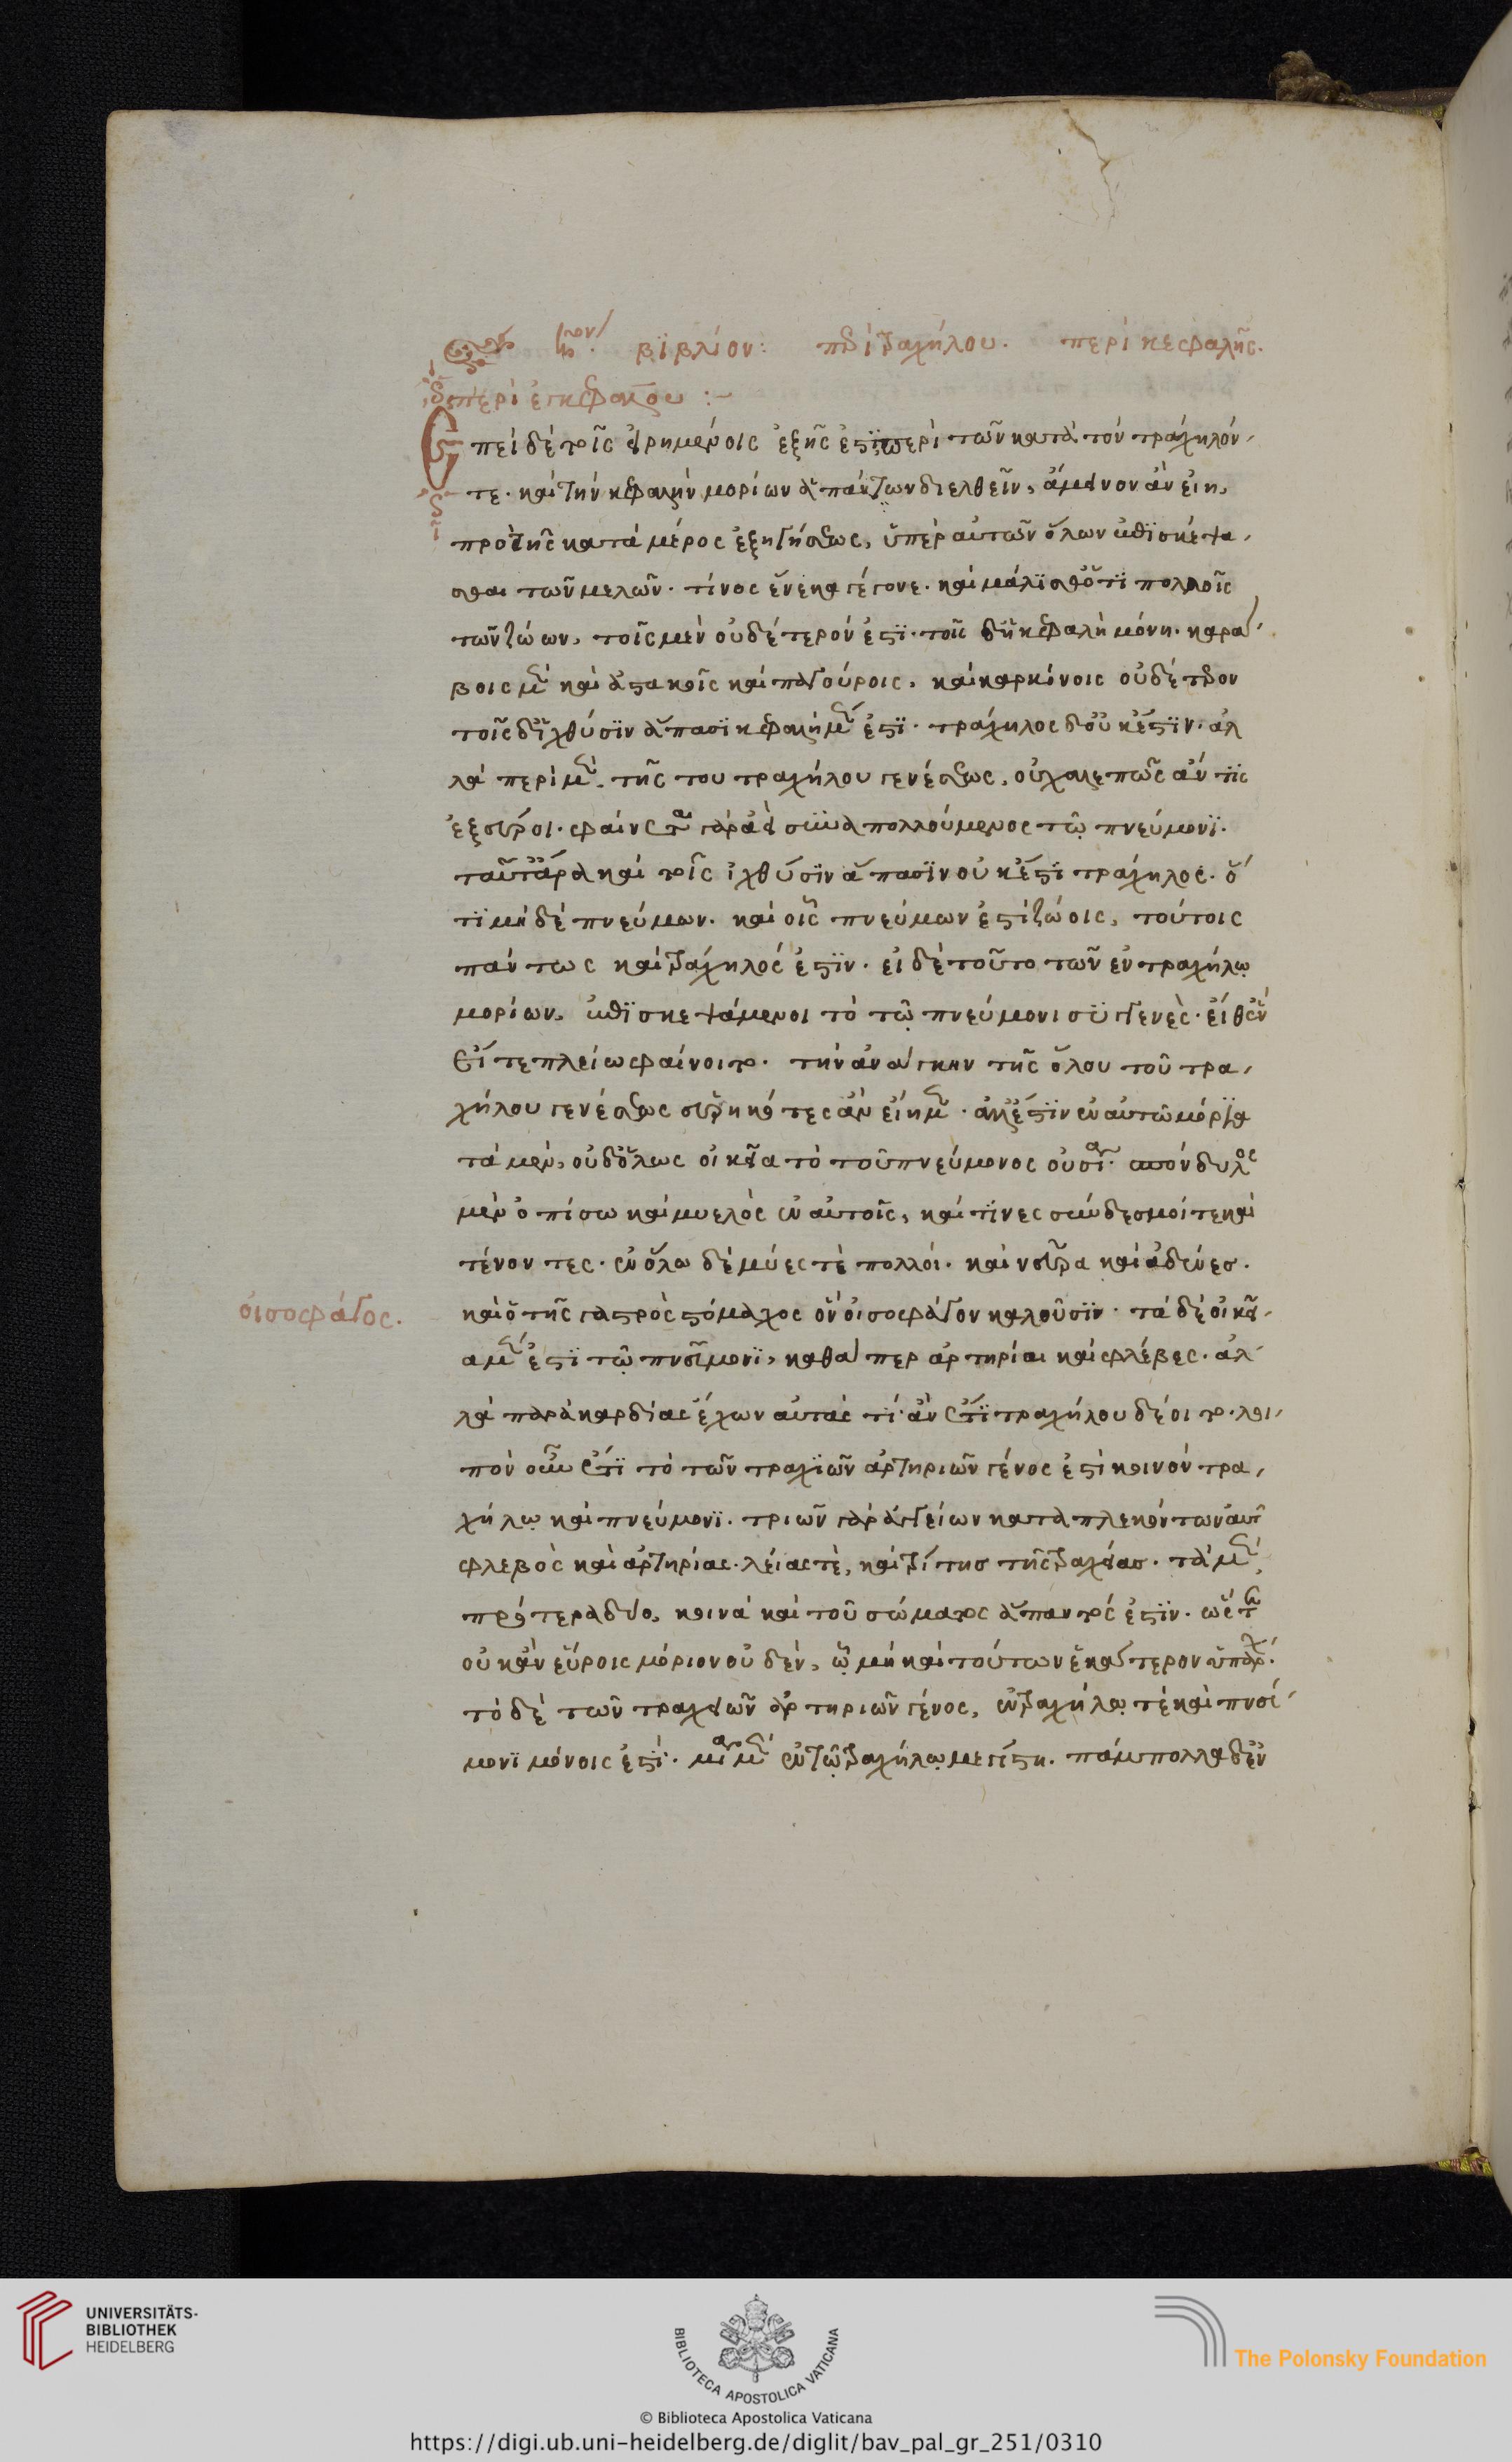 βϊβλίον: περὶ τραχήλου. περὶ κεφαλῆς.
περὶ ἐγκεφάλου :~
Ἐπεὶ δὲ τοῖς εἰρημένοις ἑξῆς ἐστϊ περὶ τῶν κατὰ τὸν τράχηλόν
τε. καὶ τὴν κεφαλὴν μορίων ἁπάντων διελθεῖν, ἄμεινον ἂν εἴη,
πρὸ τῆς κατὰ μέρος ἐξηγήσεως, ὑπὲρ αὐτῶν ὅλων ἐπϊσκέψα
σθαι τῶν μελῶν. τίνος ἕνεκα γέγονε. καὶ μάλϊσθ' ὅτϊ πολλοῖς
τῶν ζώων, τοῖς μὲν οὐδέτερόν ἐστϊ. τοῖς δ' ἡ κεφαλὴ μόνη. καρά
βοις μὲν καὶ ἀστακοῖς καὶ παγούροις, καὶ καρκίνοις οὐδέτερον
τοῖς δ' ἰχθύσϊν ἅπασϊ κεφαλὴ μέν ἐστϊ. τράχηλος δ' οὐκ ἔστϊν. ἀλ
λὰ περὶ μὲν τῆς του τραχήλου γενέσεως, οὐ χαλεπῶς ἄν τϊς
ἐξεύροι. φαίνεται γὰρ ἀεὶ συναπολλούμενος τῷ πνεύμονϊ.
ταῦτ' ἄρα καὶ τοῖς ἰχθύσϊν ἅπασϊν οὐκ ἔστϊ τράχηλος. ὅ
τϊ μὴ δὲ πνεύμων. καὶ οἷς πνεύμων ἐστὶ ζώοις, τούτοις
πάντως καὶ τράχηλός ἐστϊν. εἰ δὲ τοῦτο τῶν ἐν τραχήλῳ
μορίων, ἐπϊσκεψάμενοι τὸ τῷ πνεύμονι συγγενὲς. εἴθ' ἓν
εἴτε πλείω φαίνοιτο. τὴν ἀνάγκην τῆς ὅλου τοῦ τρα
χήλου γενέσεως εὑρηκότες ἂν εἴημεν. ἀλλ' ἔστϊν ἐν αὐτῶ μόρϊα
τὰ μὲν, οὐδ' ὅλως οἰκεῖα τὸ τοῦ πνεύμονος οὐσία. σπόνδυλος
μὲν ὀπίσω καὶ μυελὸς ἐν αὐτοῖς, καὶ τϊνες σύνδεσμοί τε καὶ
τένοντες. ἐν ὅλω δὲ μύες τὲ πολλοί. καὶ νεῦρα καὶ ἀδένες.
οἰσοφάγος.
καὶ ὁ τῆς γαστρὸς στόμαχος ὃν οἰσοφάγον καλοῦσϊν. τὰ δὲ οἰκεῖ
α μέν ἐστϊ τῷ πνεύμονϊ, καθάπερ ἀρτηρίαι καὶ φλέβες. ἀλ
λὰ παρὰ καρδίας ἔχων αὐτὰς τί ἂν ἔτϊ τραχήλου δέοιτο. λοι
πὸν οὖν ἔτϊ τὸ τῶν τραχϊῶν ἀρτηριῶν γένος ἐστὶ κοινὸν τρα
χήλῳ καὶ πνεύμονϊ. τριῶν γὰρ ἀγγείων καταπλεκόντων αὐτ
φλεβὸς καὶ ἀρτηρίας. λείας τὲ, καὶ τρίτης τῆς τραχείας. τὰ μὲν
πρότερα δύο, κοινὰ καὶ τοῦ σώματος ἅπαντός ἐστϊν.
οὐκ ἂν εὕροις μόριον οὐδὲν, ᾧ μὴ καὶ τούτων ἑκάτερον ὑπάρχ
τὸ δὲ τῶν τραχειῶν ἀρτηριῶν γένος, ἐν τραχήλῳ τὲ καὶ πνεύ
μονϊ μόνοις ἐστϊ. μία μὲν ἐν τῷ τραχήλῳ μεγίστη. πάμπολλα δ' ἐν
UNIVERSITÄTS-
BIBLIOTHEK
HEIDELBERG
BIBLIOTECA APOSTOLICA VATICANA
© Biblioteca Apostolica Vaticana
The Polonsky Foundation
https://digi.ub.uni-heidelberg.de/diglit/bav_pal_gr_251/0310